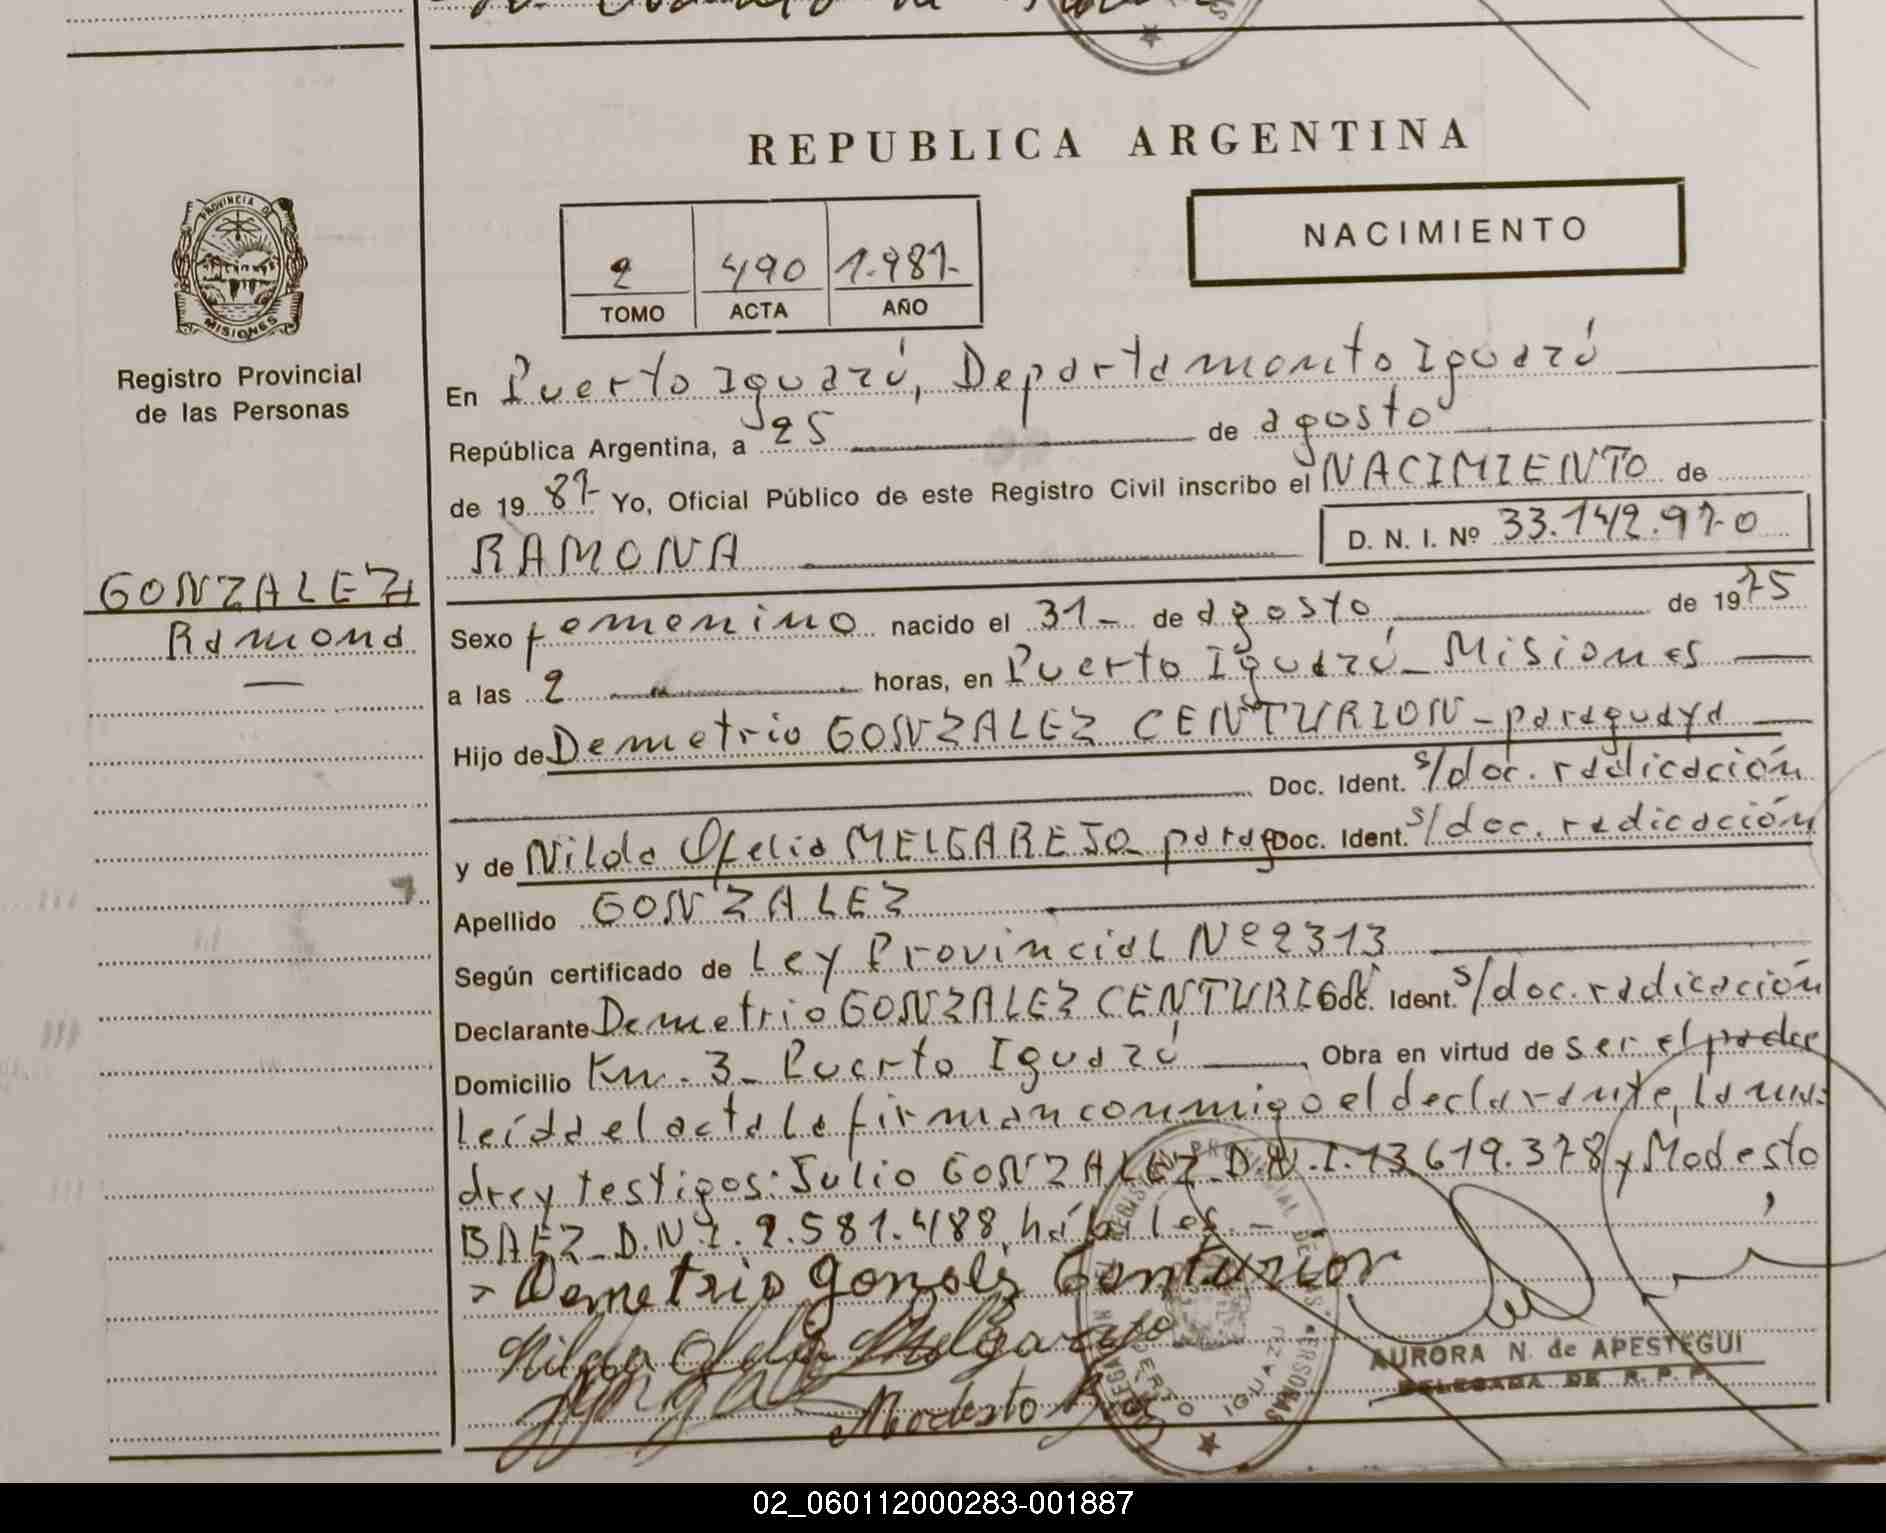 REPUBLICA ARGENTINA
NACIMIENTO
2 490 1.987-
TOMO ACTA AÑO
PROVINCIA DE
MISIONES
Registro Provincial
de las Personas
GONZALEZ
Ramona
En Puerto Iguazú, Departamento Iguazú
República Argentina, a 25 de agosto
de 1987- Yo, Oficial Público de este Registro Civil inscribo el NACIMIENTO de
RAMONA D. N. I. Nº 33.142.970
Sexo femenino nacido el 31- de agosto de 1975
a las 2 horas, en Puerto Iguazú - Misiones
Hijo de Demetrio GONZALEZ CENTURION - paraguaya
Doc. Ident. s/doc. radicación
y de Nilda Ofelia MELGAREJO - parag Doc. Ident. s/doc. radicación
Apellido GONZALEZ
Según certificado de Ley Provincial Nº 2313
Declarante Demetrio GONZALEZ CENTURION Doc. Ident. s/doc. radicación
Domicilio Km. 3 - Puerto Iguazú Obra en virtud de ser el padre
Leída el acta la firman conmigo el declarante, la ma-
dre y testigos: Julio GONZALEZ - D.N.I. 13.619.378 y Modesto
BAEZ - D.N.I. 2.581.488, hábiles.-
Demetrio Gonzales Centurion
Nilda Ofelia Melgarejo
Modesto
AURORA N. de APESTEGUI
DELEGADA DE R. P. P.
02_060112000283-001887